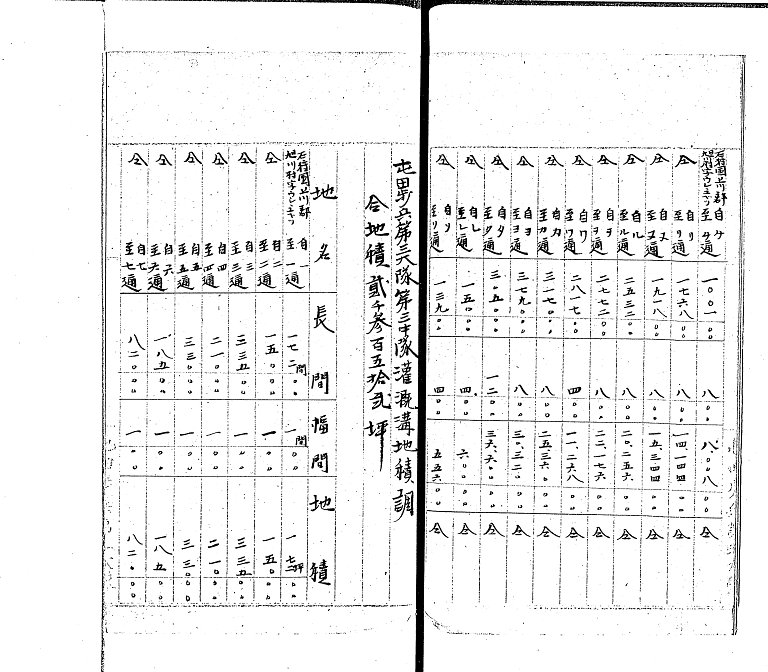 石狩國上川郡旭川村字ウシシベツ 自サ至サ通 一〇〇一〇〇 八〇〇 八、〇〇八〇〇 仝
仝 自リ至リ通 一七六八〇〇 八〇〇 一四、一四四〇〇 仝
仝 自ヌ至ヌ通 一九一八〇〇 八〇〇 一五、三四四〇〇 仝
仝 自ル至ル通 二五三二〇〇 八〇〇 二〇、二五六〇〇 仝
仝 自ヲ至ヲ通 二七七二〇〇 八〇〇 二二、一七六〇〇 仝
仝 自ワ至ワ通 二八一七〇〇 四〇〇 一一、二六八〇〇 仝
仝 自カ至カ通 三一七〇〇〇 八〇〇 二五、三六〇〇〇 仝
仝 自ヨ至ヨ通 三七九〇〇〇 八〇〇 三〇、三二〇〇〇 仝
仝 自タ至タ通 三〇五〇〇〇 一二〇〇 三六、六〇〇〇〇 仝
仝 自レ至レ通 一五〇〇〇 四〇〇 六〇〇〇〇 仝
仝 自ソ至ソ通 一三九〇〇 四〇〇 五五六〇〇 仝
屯田歩兵第三大隊第三中隊灌漑溝地積調
合地積貳千參百五拾貳坪
地名 長間 幅間 地積
石狩國上川郡旭川村字ウシシベツ 自一至一通 一七二間〇〇 一間〇〇 一七二坪〇〇
仝 自二至二通 一五〇〇〇 一〇〇 一五〇〇〇
仝 自三至三通 三三五〇〇 一〇〇 三三五〇〇
仝 自四至四通 二一〇〇〇 一〇〇 二一〇〇〇
仝 自五至五通 三三〇〇〇 一〇〇 三三〇〇〇
仝 自六至六通 一八五〇〇 一〇〇 一八五〇〇
仝 自七至七通 八二〇〇〇 一〇〇 八二〇〇〇